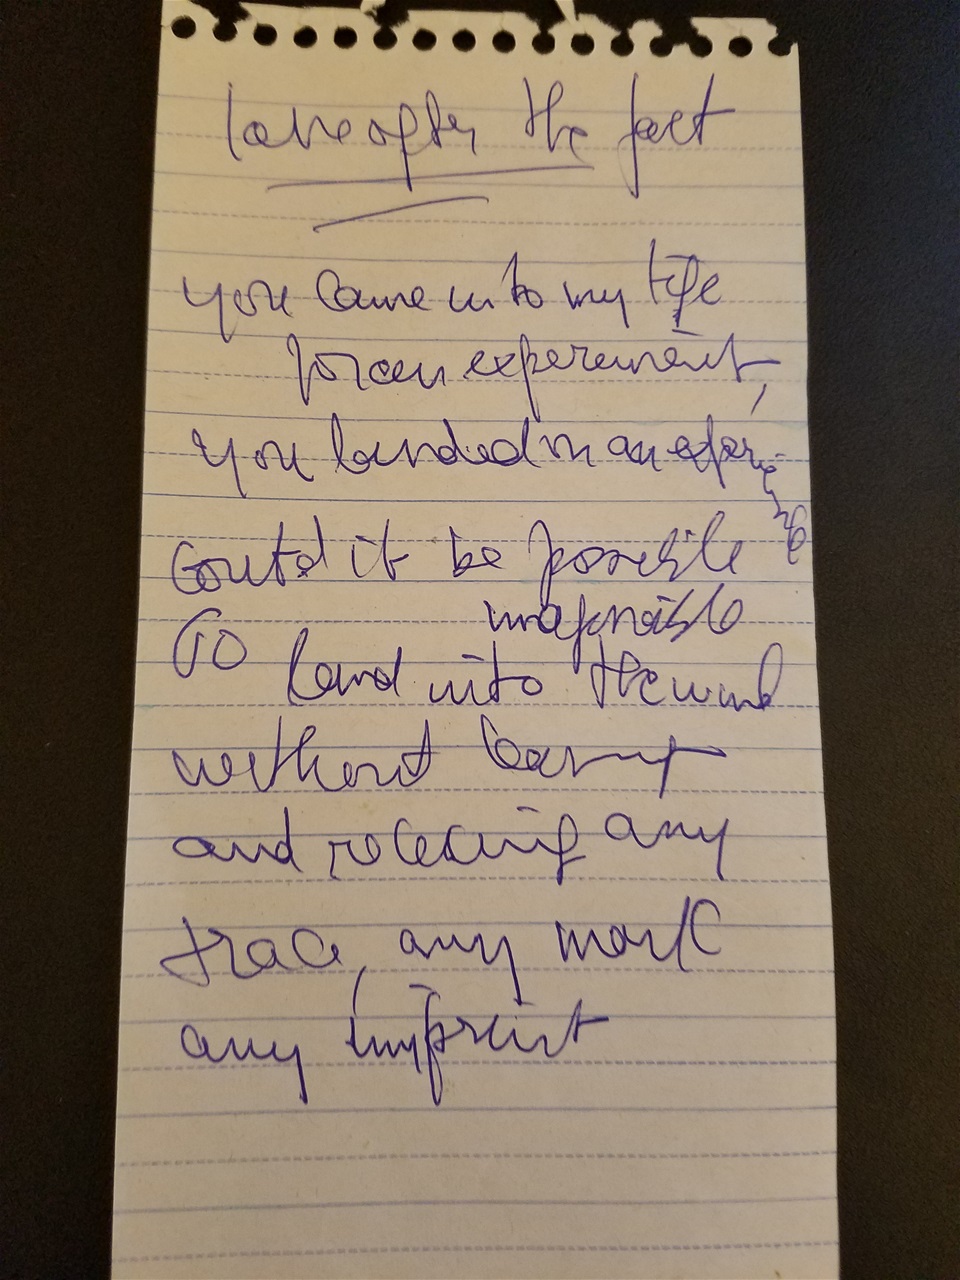 love after the fact
you came into my life
for an experiment,
you landed in an
Could it be possible
imaginable
to land into the wind
without
and receiving any
trace, any mark
any imprint